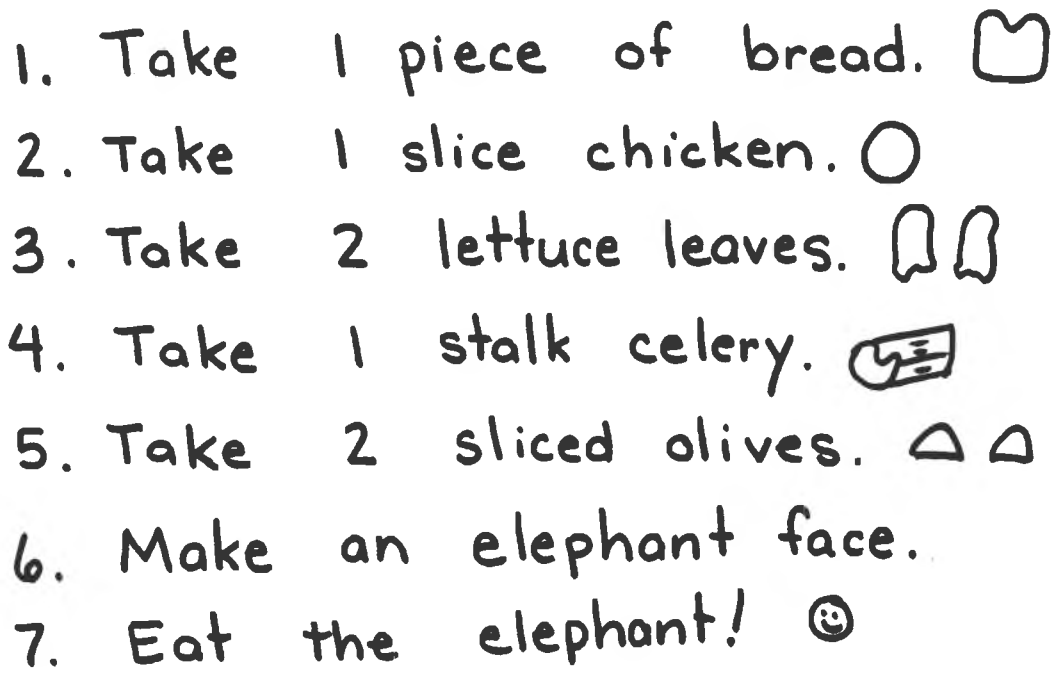 1. Take 1 piece of bread.
2. Take 1 slice chicken.
3. Take 2 lettuce leaves.
4. Take 1 stalk celery.
5. Take 2 sliced olives.
6. Make an elephant face.
7. Eat the elephant!